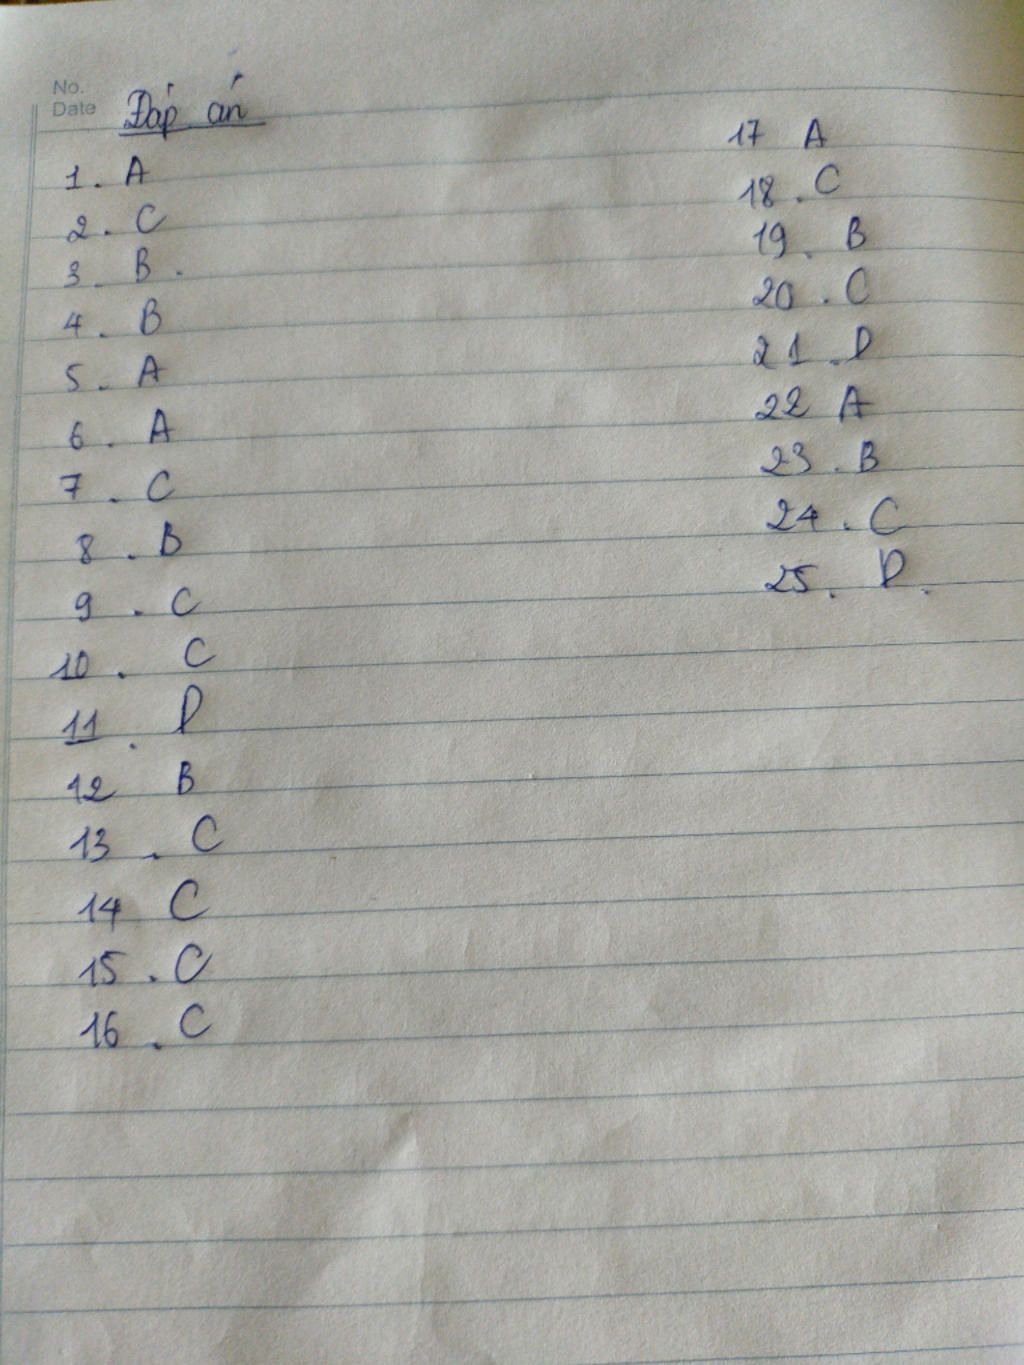 No.
Date
Đáp án
1. A
2. C
3. B.
4. B
5. A
6. A
7. C
8. B
9. C
10. C
11. D
12 B
13. C
14 C
15. C
16. C
17 A
18. C
19. B
20. C
21. D
22 A
23. B
24. C
25. D.